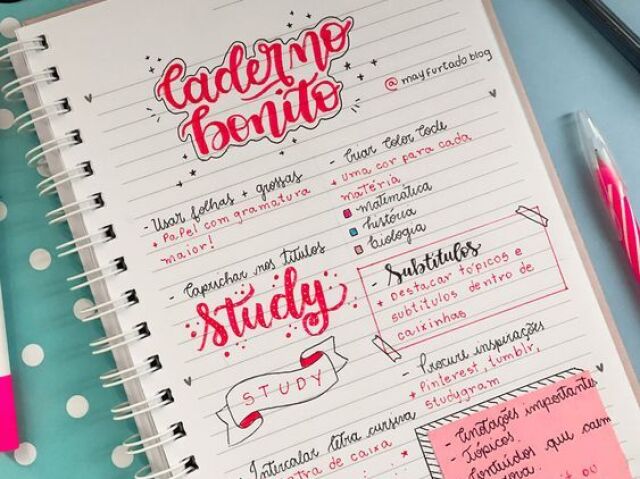 Caderno
bonito
@mayfurtadoblog
- Usar folhas + grossas
+ Papel com gramatura
maior!
- Caprichar nos títulos
Study
STUDY
- Intercalar letra cursiva
de caixa
- Criar Color Code
+ uma cor para cada
matéria
matemática
história
biologia
- Subtítulos
+ Destacar tópicos e
subtítulos dentro de
caixinhas
- Procure inspirações
+ Pinterest, tumblr,
studygram
- Anotações importantes
- Tópicos
- Conteúdos que caem